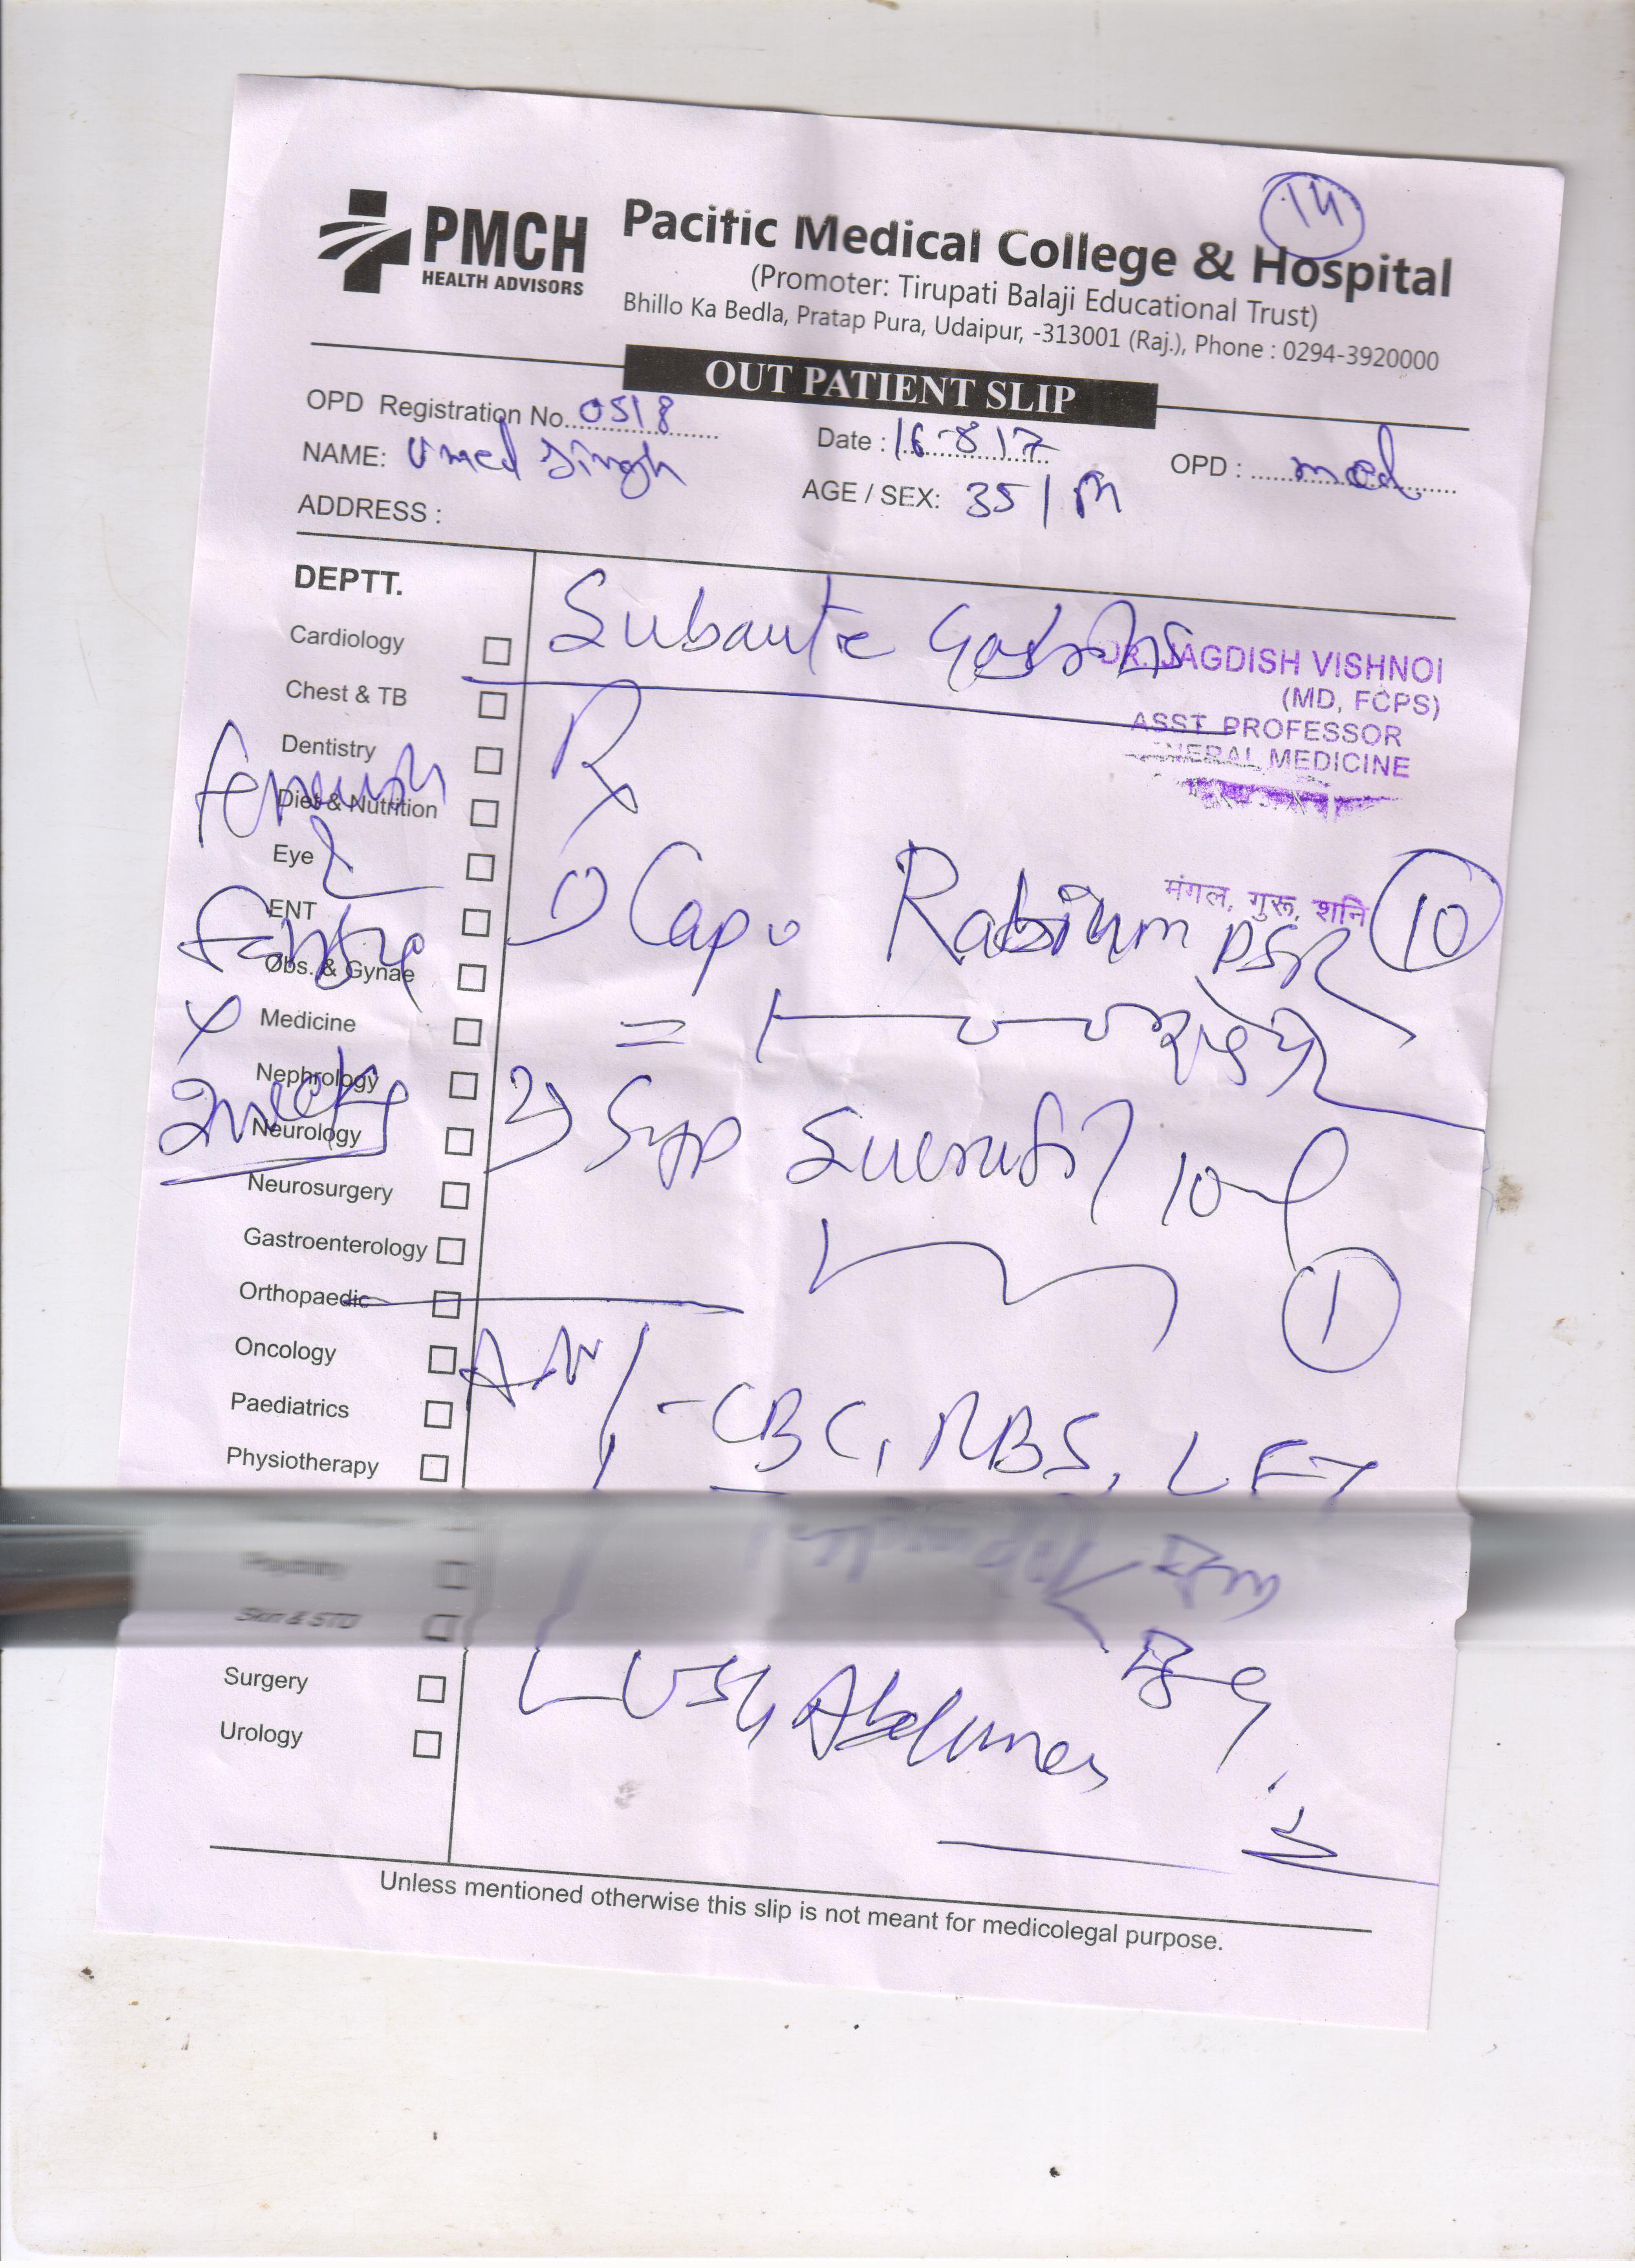 14
PMCH
HEALTH ADVISORS
Pacific Medical College & Hospital
(Promoter: Tirupati Balaji Educational Trust)
Bhillo Ka Bedla, Pratap Pura, Udaipur, -313001 (Raj.), Phone : 0294-3920000
OUT PATIENT SLIP
OPD Registration No. 0518 Date : 16-8-17 OPD : med
NAME: Umed Singh AGE / SEX: 35 / M
ADDRESS :
DEPTT.
Cardiology
Chest & TB
Dentistry
Diet & Nutrition
Eye
ENT
Obs. & Gynae
Medicine
Nephrology
Neurology
Neurosurgery
Gastroenterology
Orthopaedic
Oncology
Paediatrics
Physiotherapy
Skin & STD
Surgery
Urology
2 weeks
Subacute Gastritis
DR. JAGDISH VISHNOI
(MD, FCPS)
ASST. PROFESSOR
GENERAL MEDICINE
मंगल, गुरू, शनि
Rx
1) Cap. Rabium DSR 10
2) Syp Sucrafil 10ml
1
- CBC, RBS, LFT
USG Abdomen
Unless mentioned otherwise this slip is not meant for medicolegal purpose.